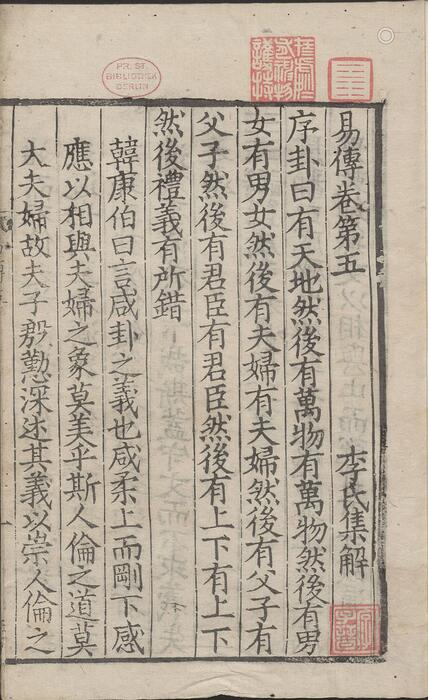 易傳卷第五 李氏集解
序卦曰有天地然後有萬物有萬物然後有男
女有男女然後有夫婦有夫婦然後有父子有
父子然後有君臣有君臣然後有上下有上下
然後禮義有所錯
韓康伯曰言咸卦之義也咸柔上而剛下感
應以相與夫婦之象莫美乎斯人倫之道莫
大夫婦故夫子殷懃深述其義以崇人倫之
PR. ST.
BIBLIOTHEK
BERLIN